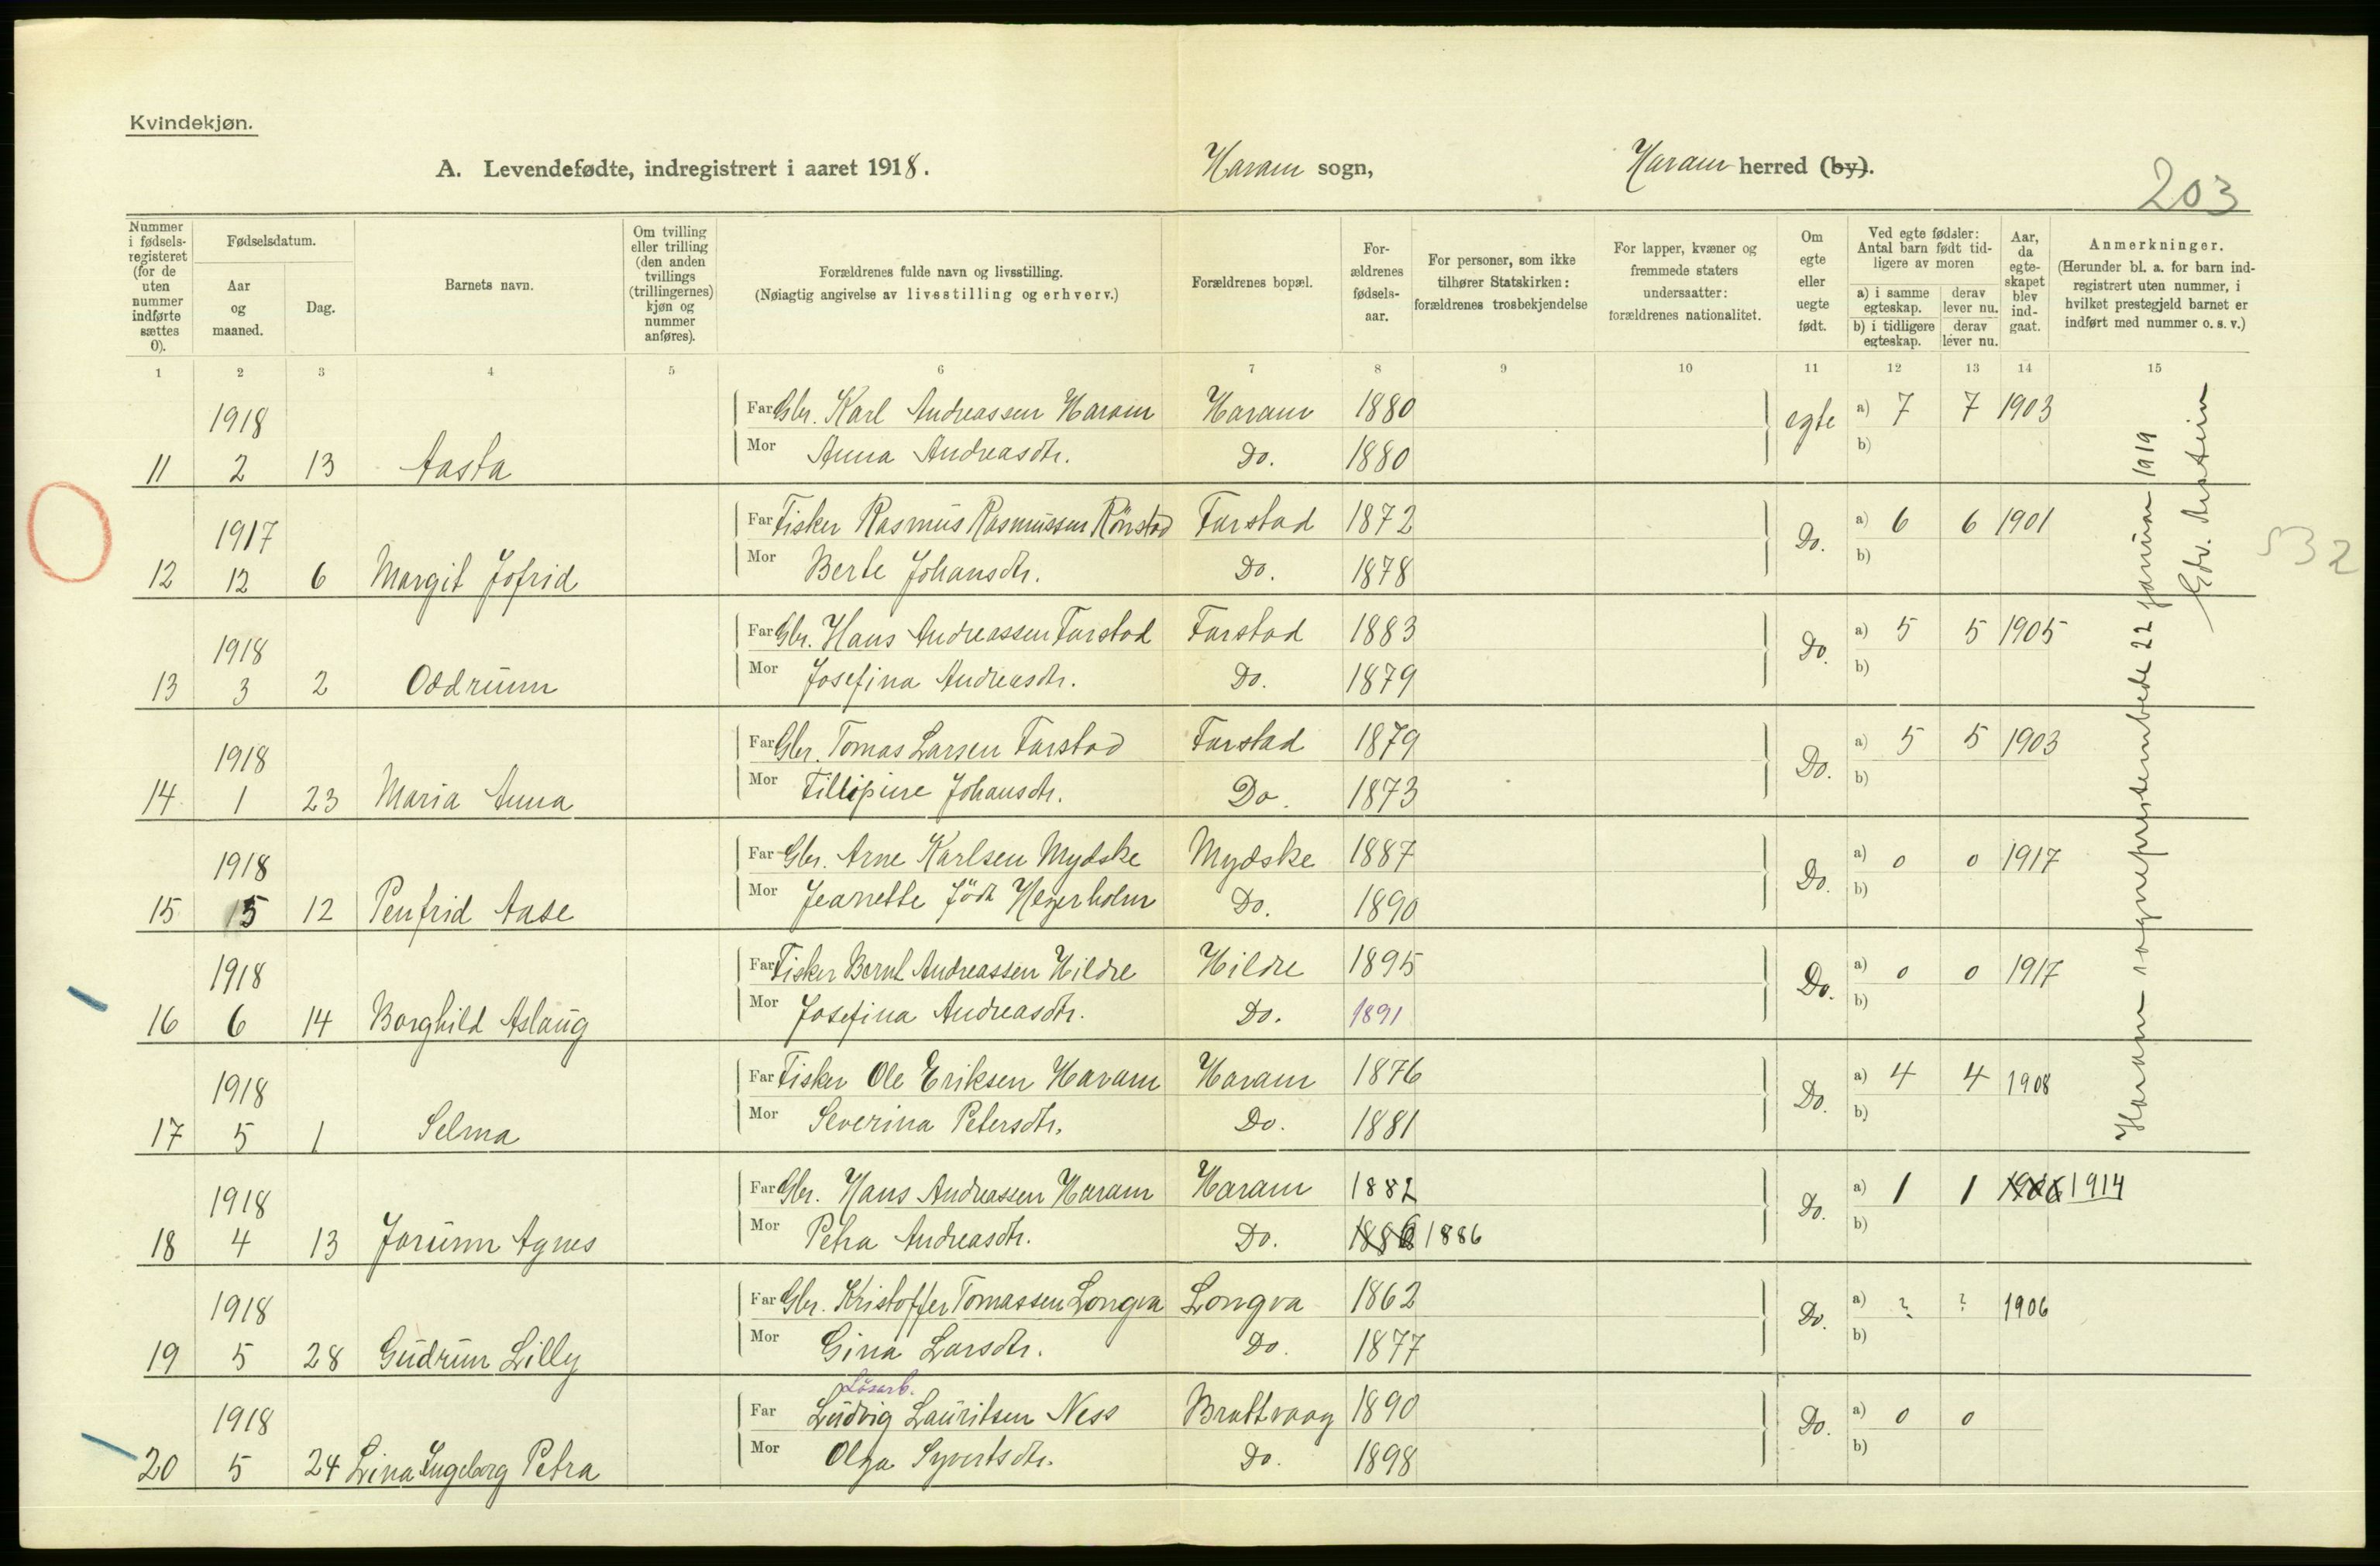 Kvindekjøn.
A. Levendefødte, indregistrert i aaret 1918. Haram sogn, Haram herred (by).
203
Nummer i fødselsregisteret (for de uten nummer indførte sættes 0). Fødselsdatum. Aar og maaned. Dag. Barnets navn. Om tvilling eller trilling (den anden tvillings (trillingernes) kjøn og nummer anføres). Forældrenes fulde navn og livsstilling. (Nøiagtig angivelse av livsstilling og erhverv.) Forældrenes bopæl. Forældrenes fødselsaar. For personer, som ikke tilhører Statskirken: forældrenes trosbekjendelse For lapper, kvæner og fremmede staters undersaatter: forældrenes nationalitet. Om egte eller uegte født. Ved egte fødsler: Antal barn født tidligere av moren a) i samme egteskap. derav lever nu. b) i tidligere egteskap. derav lever nu. Aar, da egteskapet blev indgaat. Anmerkninger. (Herunder bl. a. for barn indregistrert uten nummer, i hvilket prestegjeld barnet er indført med nummer o. s. v.)
1 2 3 4 5 6 7 8 9 10 11 12 13 14 15
1918 Far Gbr. Karl Andreassen Haram Haram 1880 egte a) 7 7 1903
11 2 13 Aasta Mor Anna Andreasdtr. Do. 1880 b)
1917 Far Fisker Rasmus Rasmussen Rönstad Farstad 1872 Do. a) 6 6 1901
12 12 6 Margit Jofrid Mor Berte Johansdtr. Do. 1878 b)
532
1918 Far Gbr. Hans Andreassen Farstad Farstad 1883 Do. a) 5 5 1905
13 3 2 Oddrunn Mor Josefina Andreasdtr. Do. 1879 b)
1918 Far Gbr. Tomas Larsen Farstad Farstad 1879 Do. a) 5 5 1903
14 1 23 Maria Anna Mor Fillipine Johansdtr. Do. 1873 b)
1918 Far Gbr. Arne Karlsen Mydske Mydske 1887 Do. a) 0 0 1917
15 5 12 Penfrid Aase Mor Jeanette född Hegerholm Do. 1890 b)
1918 Far Fisker Bernt Andreassen Hildre Hildre 1895 Do. a) 0 0 1917
16 6 14 Borghild Aslaug Mor Josefina Andreasdtr. Do. 1891 b)
1918 Far Fisker Ole Eriksen Haram Haram 1876 Do. a) 4 4 1908
17 5 1 Selma Mor Severina Petersdtr. Do. 1881 b)
1918 Far Gbr. Hans Andreassen Haram Haram 1882 Do. a) 1 1 1906 1914
18 4 13 Jorunn Agnes Mor Petra Andreasdtr. Do. 1886 1886 b)
1918 Far Gbr. Kristoffer Tomassen Longva Longva 1862 Do. a) ? ? 1906
19 5 28 Gudrun Lilly Mor Gina Larsdtr. Do. 1877 b)
Lösarb.
1918 Far Ludvig Lauritsen Ness Brattvaag 1890 Do. a) 0 0
20 5 24 Lina Ingeborg Petra Mor Olga Syvertsdtr. Do. 1898 b)
Haram sogneprestembede 22 januar 1919